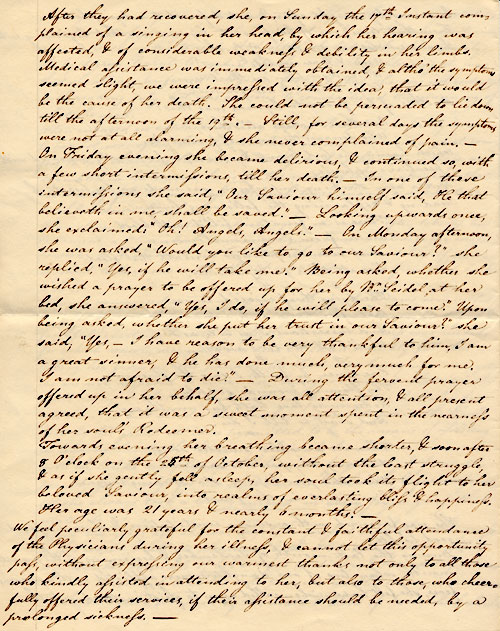 After they had recovered, she, on Sunday the 17th Instant com,
plained of a singing in her head, by which her hearing was
affected, & of considerable weakness & debility in her limbs.
Medical assistance was immediately obtained, & altho' the symptoms
seemed slight, we were impressed with the idea, that it would
be the cause of her death. She could not be persuaded to lie down
till the afternoon of the 19th. — Still, for several days the symptoms
were not at all alarming, & she never complained of pain. —
On Friday evening she became delirious, & continued so, with
a few short intermissions, till her death. — In one of these
intermissions she said, "Our Saviour himself said, He that
believeth in me, shall be saved." — Looking upwards once,
she exclaimed, "Oh! Angels, Angels." — On Monday afternoon,
she was asked, "Would you like to go to our Saviour?" she
replied, "Yes, if he will take me." Being asked, whether she
wished a prayer to be offered up for her by Br. Seidel at her
bed, she answered "Yes, I do, if he will please to come." Upon
being asked, whether she put her trust in our Saviour? she
said, "Yes, — I have reason to be very thankful to him, I am
a great sinner, & he has done much, very much for me.
I am not afraid to die." — During the fervent prayer
offered up in her behalf, she was all attention, & all present
agreed, that it was a sweet moment spent in the nearness
of her soul's Redeemer.
Towards evening her breathing became shorter, & soon after
8 O'clock on the 25th of October, without the least struggle,
& as if she gently fell asleep, her soul took its flight to her
beloved Saviour, into realms of everlasting bliss & happiness.
Her age was 21 years & nearly 6 months. —
We feel peculiarly grateful for the constant & faithful attendance
of the Physicians during her illness, & cannot let this opportunity
pass, without expressing our warmest thanks not only to all those
who kindly assisted in attending to her, but also to those, who cheer=
fully offered their services, if their assistance should be needed, by a
prolonged sickness. —